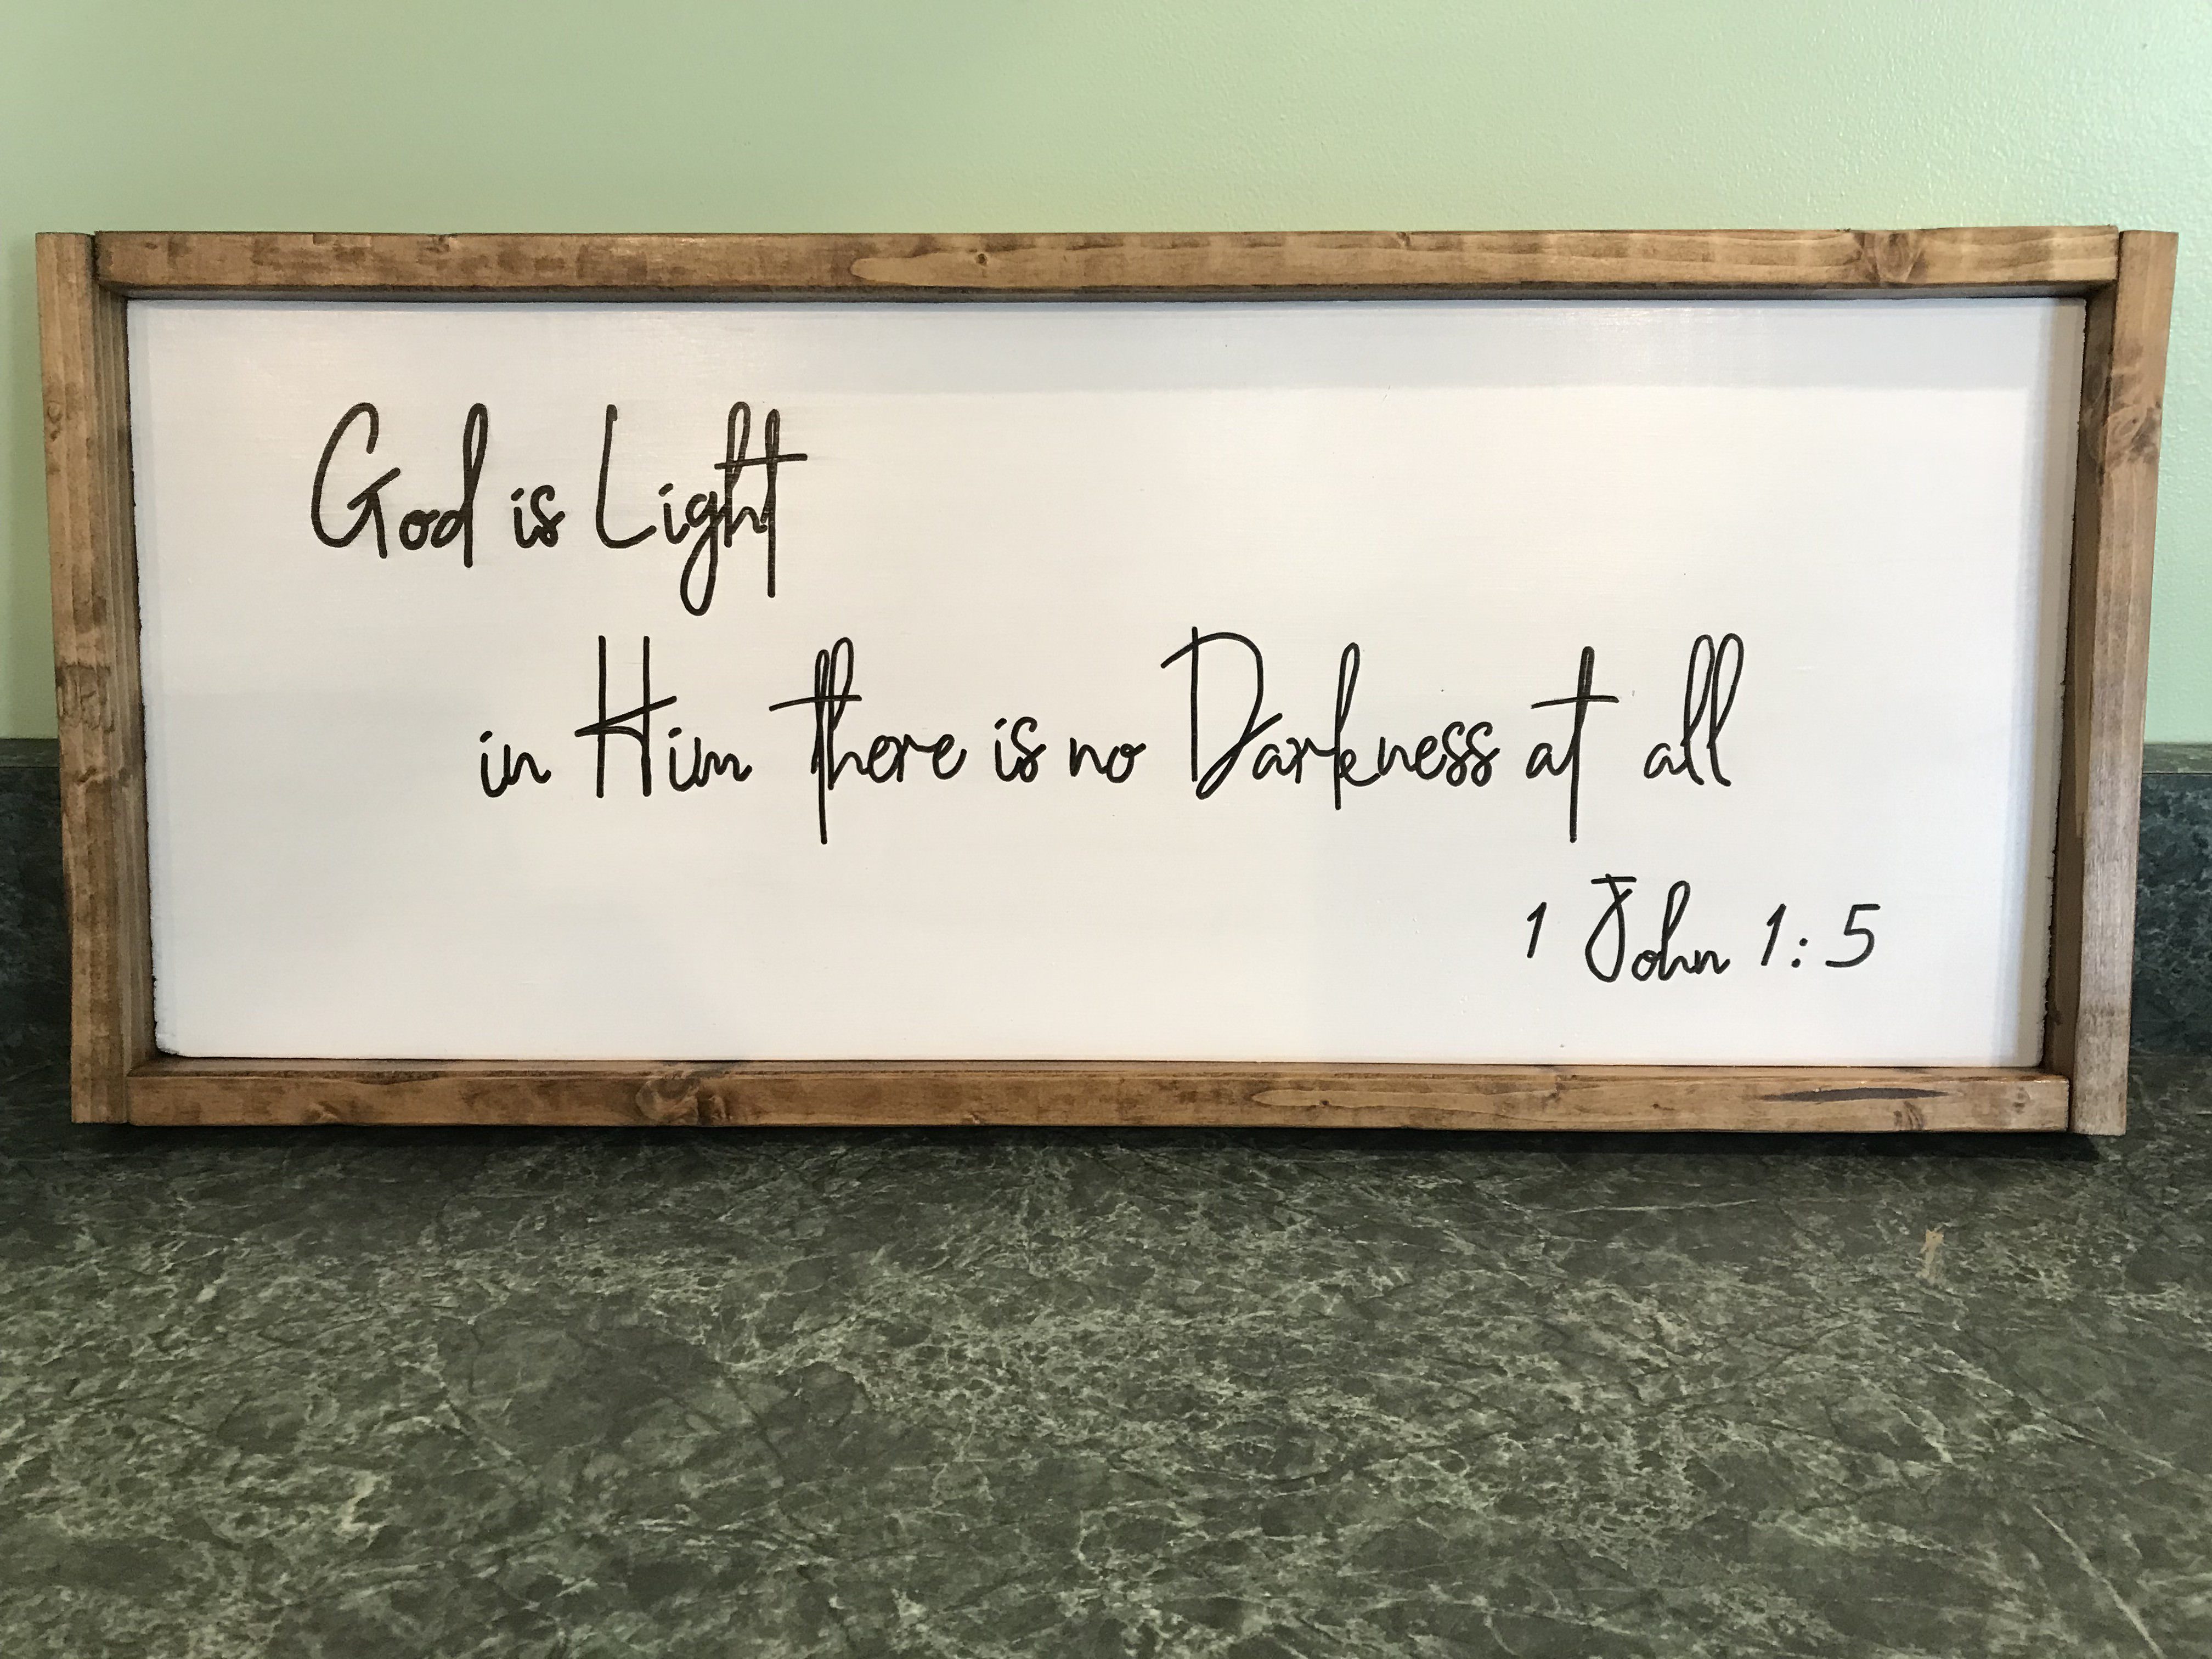 God is Light
in Him there is no Darkness at all
1 John 1:5